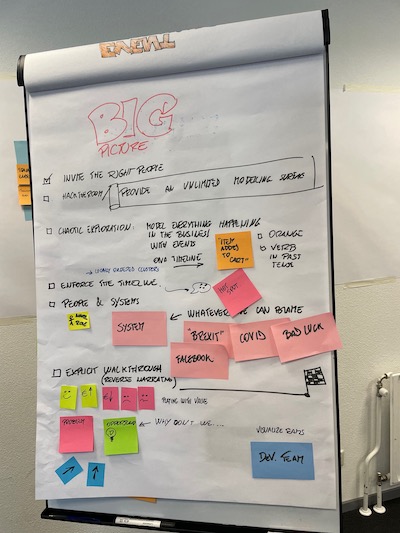 EVENT
BIG
PICTURE
INVITE THE RIGHT PEOPLE
HACK THE ROOM
PROVIDE AN UNLIMITED MODELING SURFACE
CHAOTIC EXPLORATION: MODEL EVERYTHING HAPPENING
IN THE BUSINESS
WITH EVENTS
ON A TIMELINE
"ITEM
ADDED
TO
CART"
ORANGE
VERB
IN PAST
TENSE
LOCALLY ORDERED CLUSTERS
HOT
SPOT
ENFORCE THE TIMELINE
PEOPLE & SYSTEMS
WHATEVER WE CAN BLAME
SYSTEM
"BREXIT"
COVID
BAD LUCK
FACEBOOK
EXPLICIT WALKTHROUGH
(REVERSE NARRATIVE)
PLAYING WITH VALUE
PROBLEM
OPPORTUNITY
WHY DON'T WE....
VISUALIZE TEAMS
DEV. TEAM